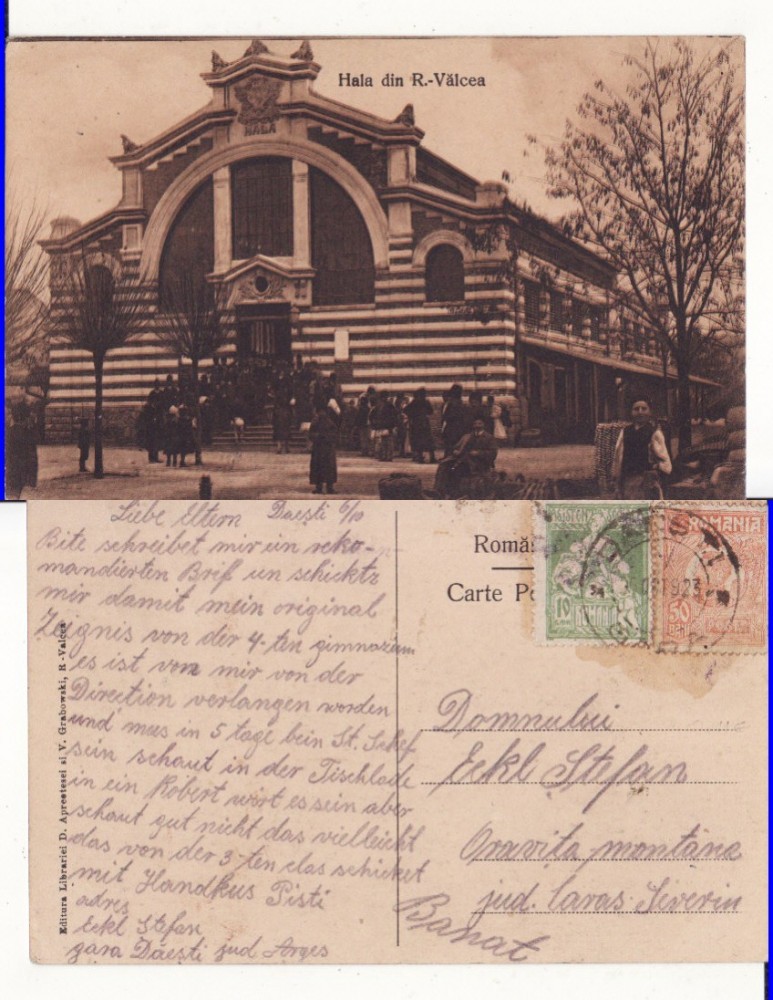 Hala din R.-Vâlcea
HALA
Liebe Eltern Daești 6/10
Bite schreibet mir un reko-
mandierten Brif un schickts
mir damit mein original
Zeignis von der 4-ten gimnazium
es ist von mir von der
Direction verlangen worden
und mus in 5 tage bein St. Schef
sein schaut in der Tischlade
in ein Kobert wirt es sein aber
schaut gut nicht das vielleicht
das von der 3-ten clas schicket
mit Handkus Pisti
adres
Eckl Stefan
gara Dăești jud Argeș
Editura Librariei D. Apreotesei si V. Grabowski, R.-Valcea
Româ
Carte Po
ROMANIA
10
50
1923
Domnului
Eckl Stefan
Oravița montană
jud. Caraș Severin
Banat